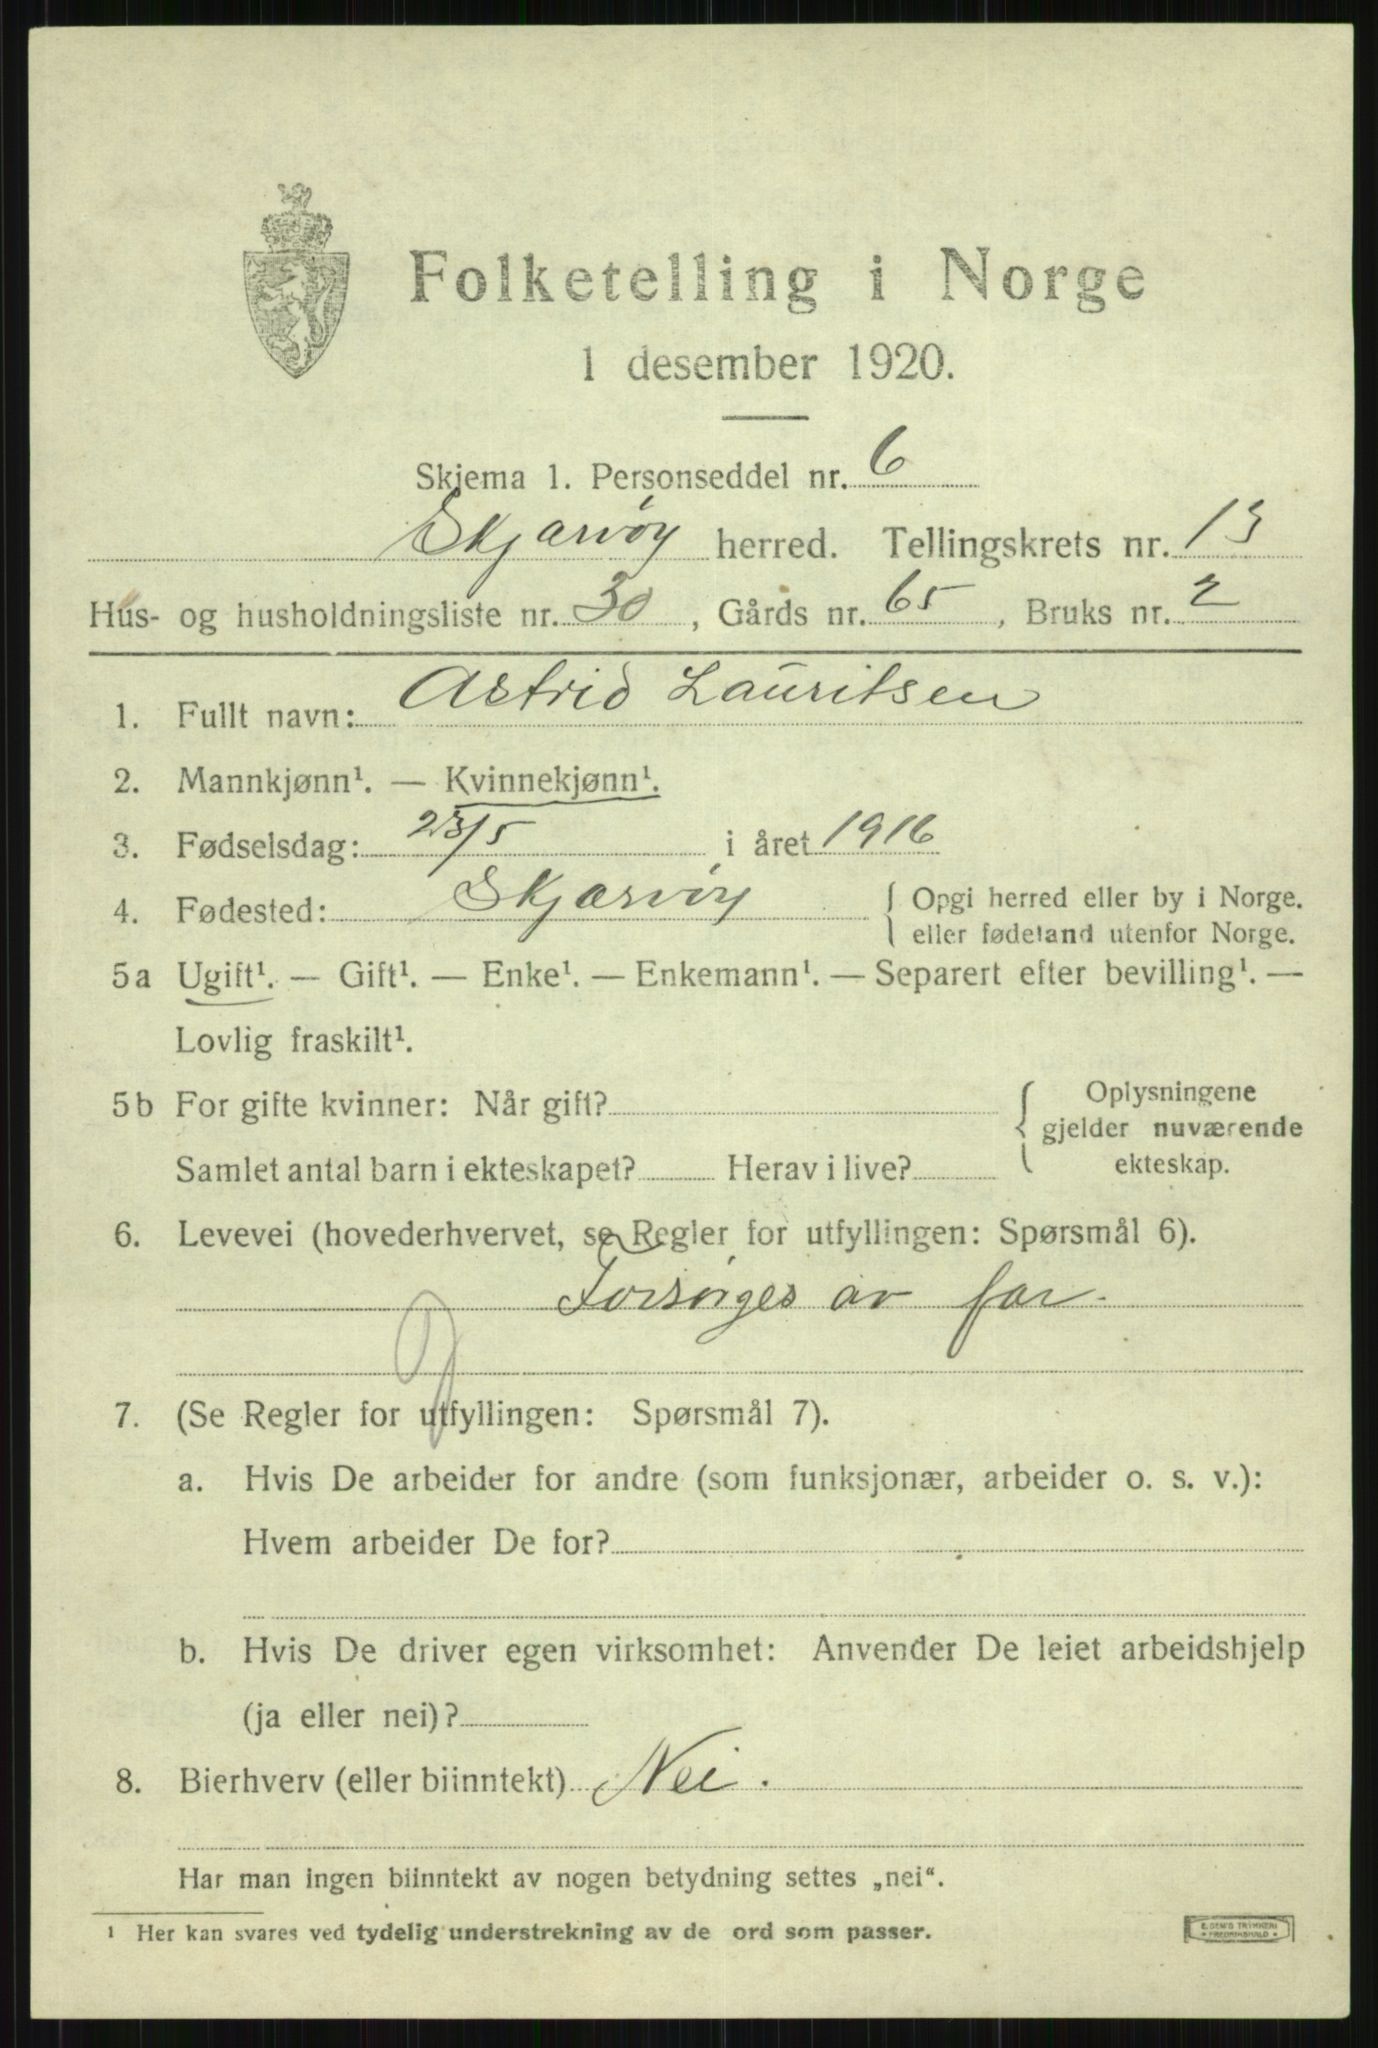 Folketelling i Norge
1 desember 1920.
Skjema 1. Personseddel nr. 6
Skjærvøy herred. Tellingskrets nr. 13
Hus- og husholdningsliste nr. 30, Gårds nr. 65, Bruks nr. 2
1. Fullt navn: Astrid Lauritsen
2. Mannkjønn¹. — Kvinnekjønn¹.
3. Fødselsdag: 23/5 i året 1916
4. Fødested: Skjærvøy { Opgi herred eller by i Norge.
eller fødeland utenfor Norge.
5a Ugift¹. — Gift¹. — Enke¹. — Enkemann¹. — Separert efter bevilling¹. —
Lovlig fraskilt¹.
5b For gifte kvinner: Når gift? { Oplysningene
gjelder nuværende
Samlet antal barn i ekteskapet? Herav i live? ekteskap.
6. Levevei (hovederhvervet, se Regler for utfyllingen: Spørsmål 6).
Forsørges av far.
7. (Se Regler for utfyllingen: Spørsmål 7).
a. Hvis De arbeider for andre (som funksjonær, arbeider o. s. v.):
Hvem arbeider De for?
b. Hvis De driver egen virksomhet: Anvender De leiet arbeidshjelp
(ja eller nei)?
8. Bierhverv (eller biinntekt) Nei.
Har man ingen biinntekt av nogen betydning settes „nei“.
¹ Her kan svares ved tydelig understrekning av de ord som passer.
E. SEM'S TRYKKERI
FREDRIKSHALD